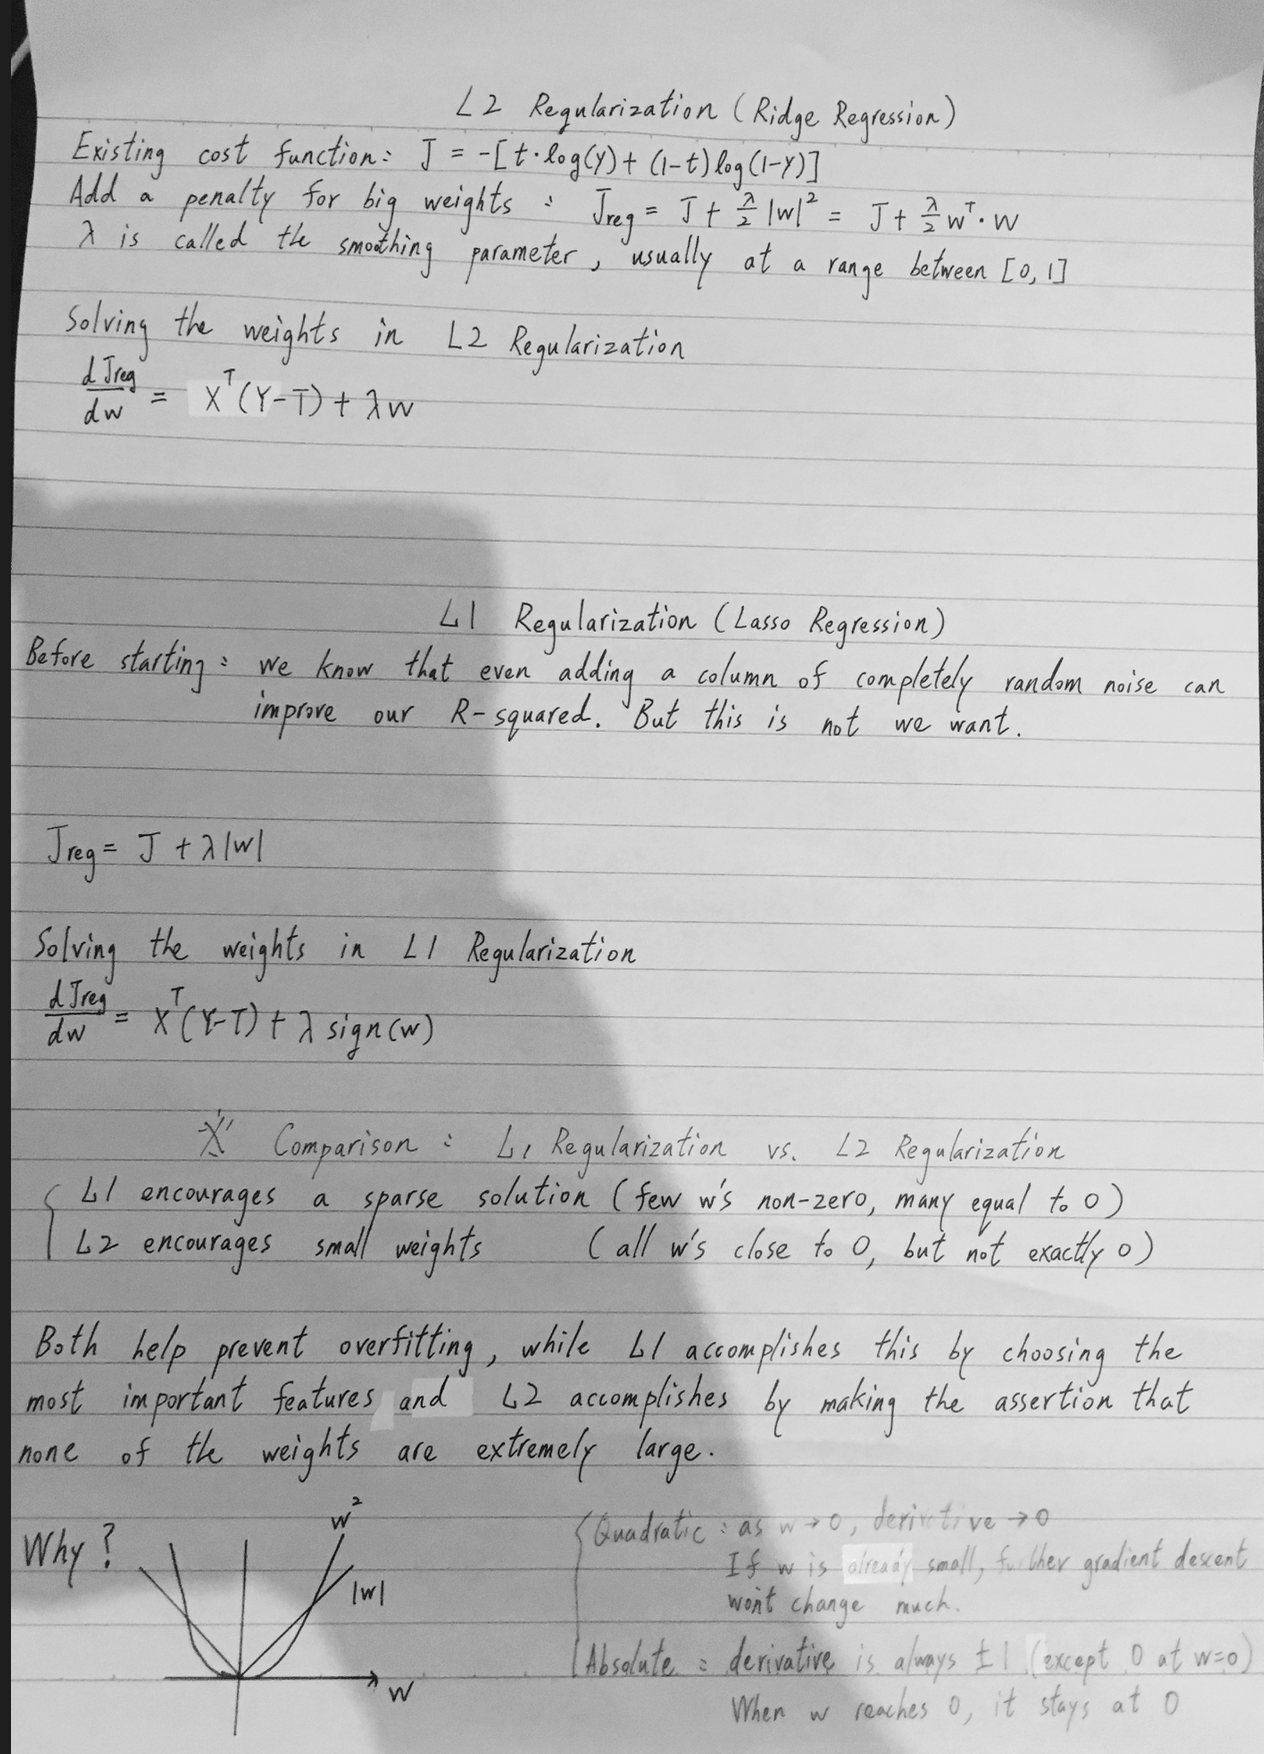 L2 Regularization (Ridge Regression)
Existing cost function: J = -[t·log(y) + (1-t)log(1-y)]
Add a penalty for big weights : Jreg = J + λ/2 |w|² = J + λ/2 wᵀ·w
λ is called the smoothing parameter, usually at a range between [0, 1]
Solving the weights in L2 Regularization
dJreg/dw = Xᵀ(Y-T) + λw
L1 Regularization (Lasso Regression)
Before starting: we know that even adding a column of completely random noise can
improve our R-squared. But this is not we want.
Jreg = J + λ|w|
Solving the weights in L1 Regularization
dJreg/dw = Xᵀ(Y-T) + λ sign(w)
※ Comparison : L1 Regularization vs. L2 Regularization
L1 encourages a sparse solution (few w's non-zero, many equal to 0)
L2 encourages small weights (all w's close to 0, but not exactly 0)
Both help prevent overfitting, while L1 accomplishes this by choosing the
most important features, and L2 accomplishes by making the assertion that
none of the weights are extremely large.
Why?
w²
|w|
w
Quadratic : as w→0, derivative→0
If w is already small, further gradient descent
won't change much.
Absolute : derivative is always ±1 (except 0 at w=0)
When w reaches 0, it stays at 0